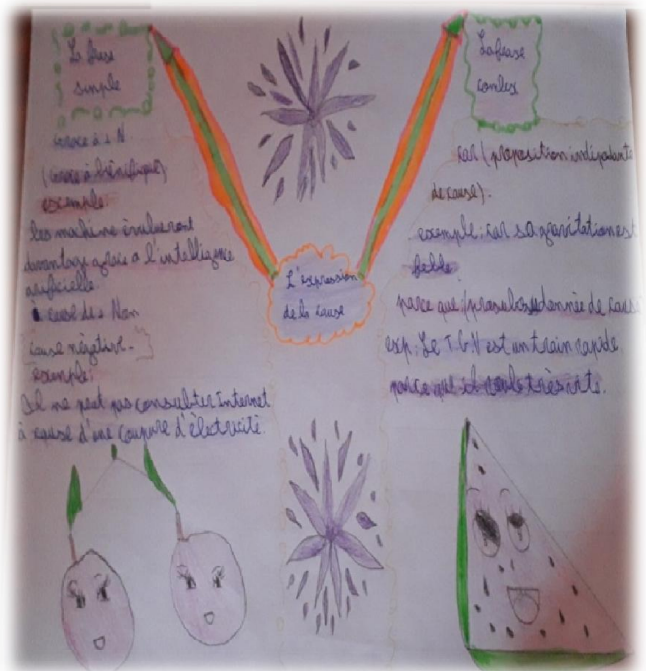 La frase
simple
Grace à + N.
(Grace à bénéfique)
exemple:
les machine évilueront
davantage grâce a l'intelligence
artificielle.
à cause de + Nom
cause négative.
exemple:
Il ne peut pas consulter Internet
à cause d'une coupure d'électricité.
L'expression
de la cause
La frase
conlex
car (proposition indépendante
de cause).
exemple: car sa gravitation est
faible
parce que de cause
exp: Le T G V est un train rapide,
parce que il roule très vite.